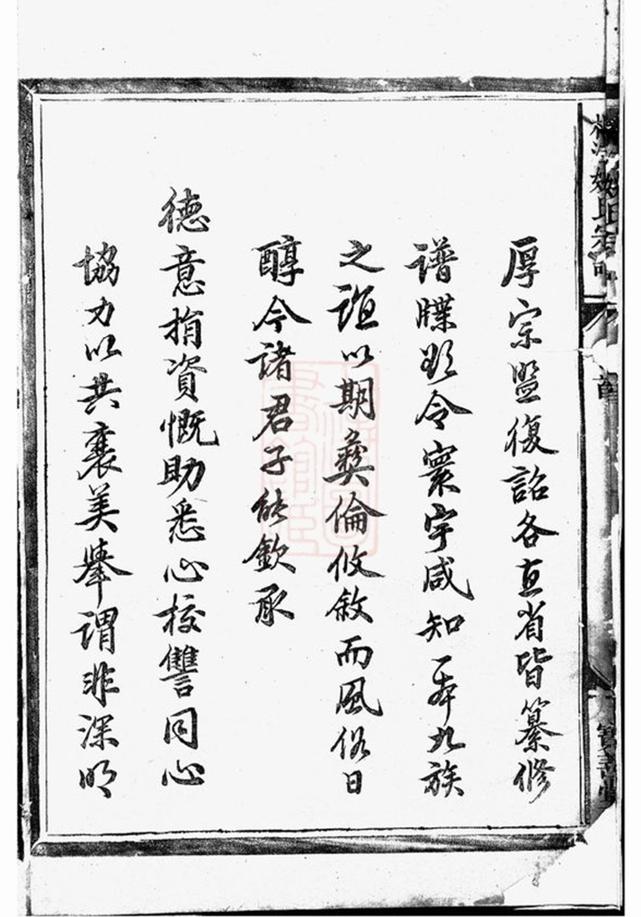 厚宗盟復詔各直省皆纂修
譜牒欲令寰宇咸知一本九族
之誼以期彝倫攸敘而風俗日
醇今諸君子能欽承
德意捐資慨助悉心校讐同心
協力以共襄美舉謂非深明